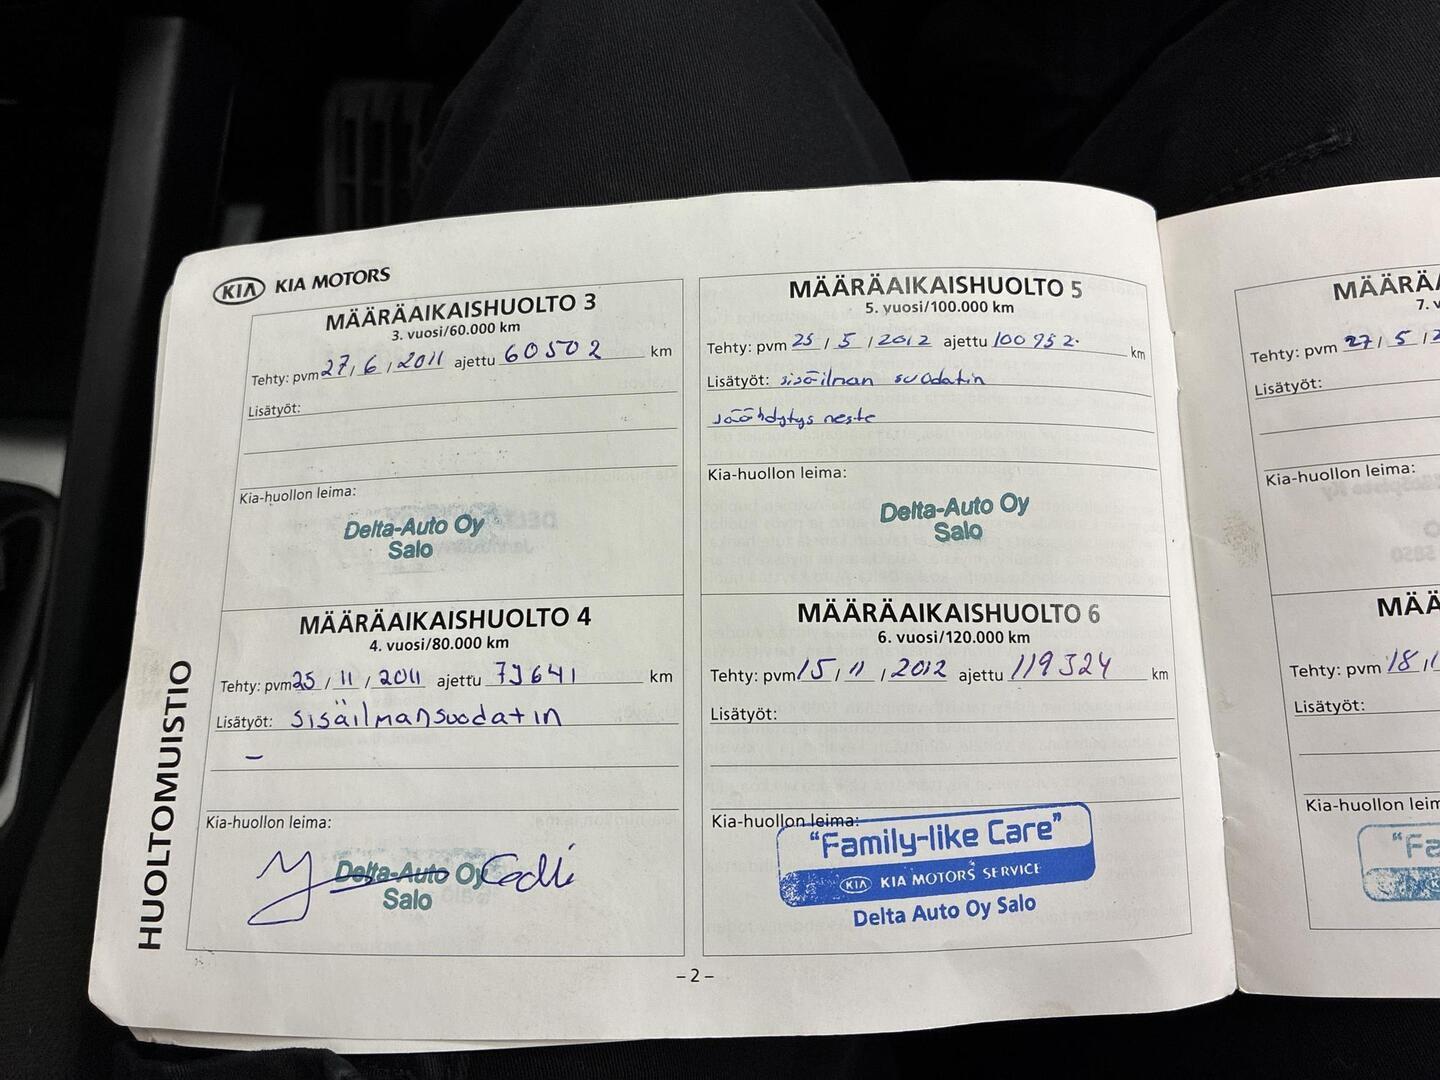 KIA KIA MOTORS
MÄÄRÄAIKAISHUOLTO 3
3. vuosi/60.000 km
Tehty: pvm 27 / 6 / 2011 ajettu 60502 km
Lisätyöt:
Kia-huollon leima:
Delta-Auto Oy
Salo
MÄÄRÄAIKAISHUOLTO 4
4. vuosi/80.000 km
Tehty: pvm 25 / 11 / 2011 ajettu 79641 km
Lisätyöt: sisäilmansuodatin
–
Kia-huollon leima:
Delta-Auto Oy
Salo
HUOLTOMUISTIO
MÄÄRÄAIKAISHUOLTO 5
5. vuosi/100.000 km
Tehty: pvm 25 / 5 / 2012 ajettu 100952. km
Lisätyöt: sisäilman suodatin
jäähdytys neste
Kia-huollon leima:
Delta-Auto Oy
Salo
MÄÄRÄAIKAISHUOLTO 6
6. vuosi/120.000 km
Tehty: pvm 15 / 11 / 2012 ajettu 119324 km
Lisätyöt:
Kia-huollon leima:
"Family-like Care"
KIA KIA MOTORS SERVICE
Delta Auto Oy Salo
– 2 –
MÄÄRÄA
7. v
Tehty: pvm 27 / 5 / 2
Lisätyöt:
Kia-huollon leima:
MÄÄ
Tehty: pvm 18 / 1
Lisätyöt:
Kia-huollon leim
"Fa